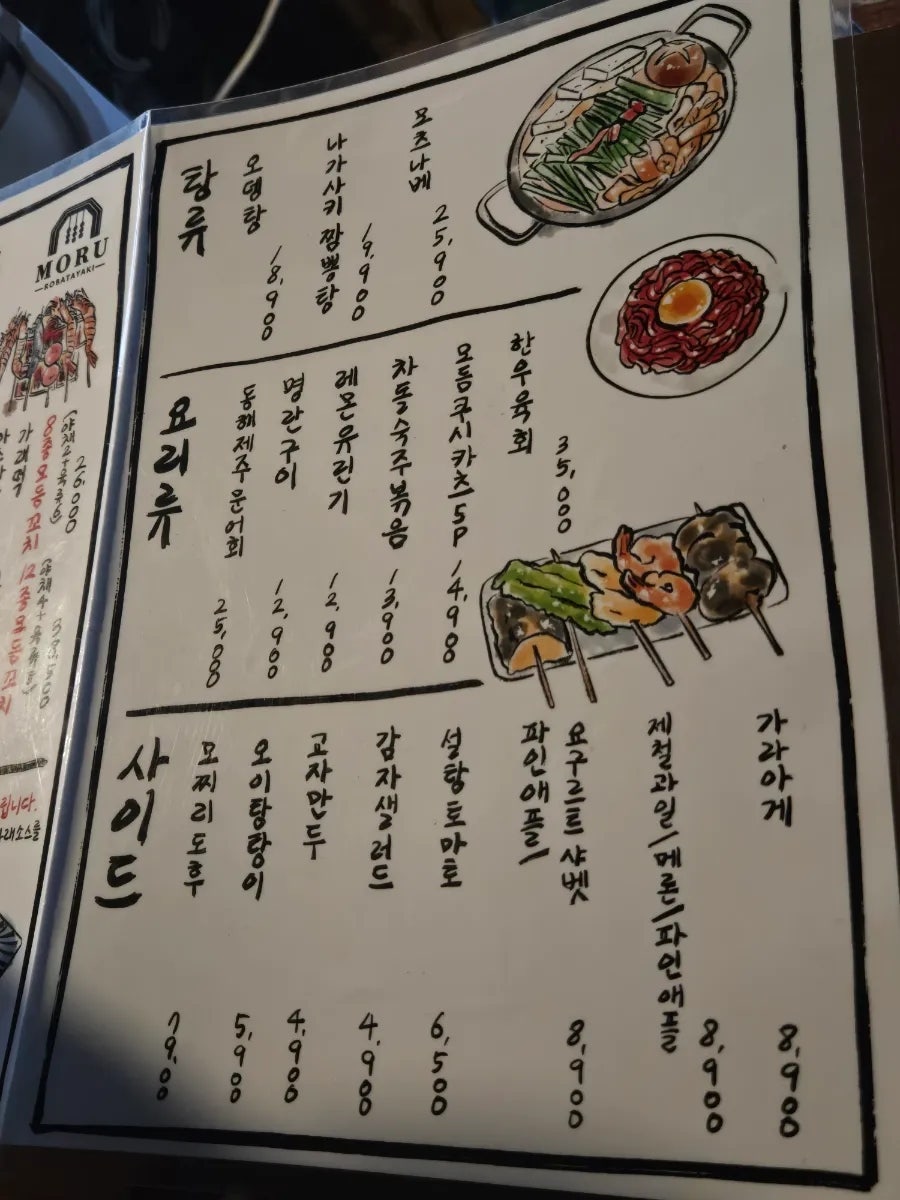 MORU
ROBATAYAKI
가래떡
8종모둠꼬치
(야채2+육류6)
26,000
12종모둠꼬치
39,500
립니다.
탕류
오뎅탕
18,900
나가사키 짬뽕탕
19,900
모츠나베
25,900
요리류
동해제주문어회
25,000
명란구이
12,900
레몬유린기
12,900
차돌숙주볶음
13,900
모둠쿠시카츠5P
14,900
한우육회
35,000
사이드
모찌리도후
7,900
오이탕탕이
5,900
교자만두
4,900
감자샐러드
4,900
설탕토마토
6,500
파인애플/
요구르트 샤벳
8,900
제철과일/메론/파인애플
8,900
가라아게
8,900